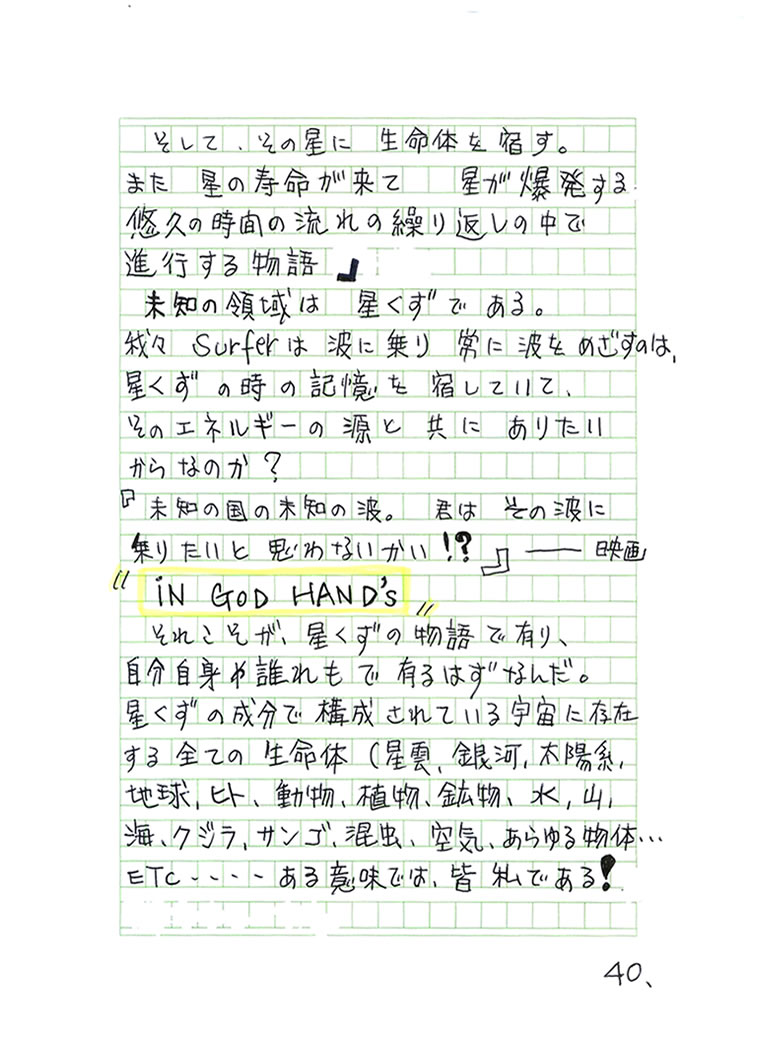 そして、その星に 生命体を宿す。
また 星の寿命が来て 星が爆発する
悠久の時間の流れの繰り返しの中で
進行する物語』
未知の領域は 星くずである。
我々 Surferは 波に乗り 常に波をめざすのは、
星くずの時の記憶を 宿していて、
そのエネルギーの源と 共に ありたい
からなのか?
『未知の国の未知の波。 君は その波に
乗りたいと 思わないかい!?』―― 映画
"iN GOD HAND's"
それこそが、星くずの物語で有り、
自分自身や誰れもで有るはずなんだ。
星くずの成分で構成されている宇宙に存在
する全ての生命体(星雲、銀河、太陽系、
地球、ヒト、動物、植物、鉱物、水、山、
海、クジラ、サンゴ、混虫、空気、あらゆる物体…
ETC・・・・ある意味では、皆私である!
40、